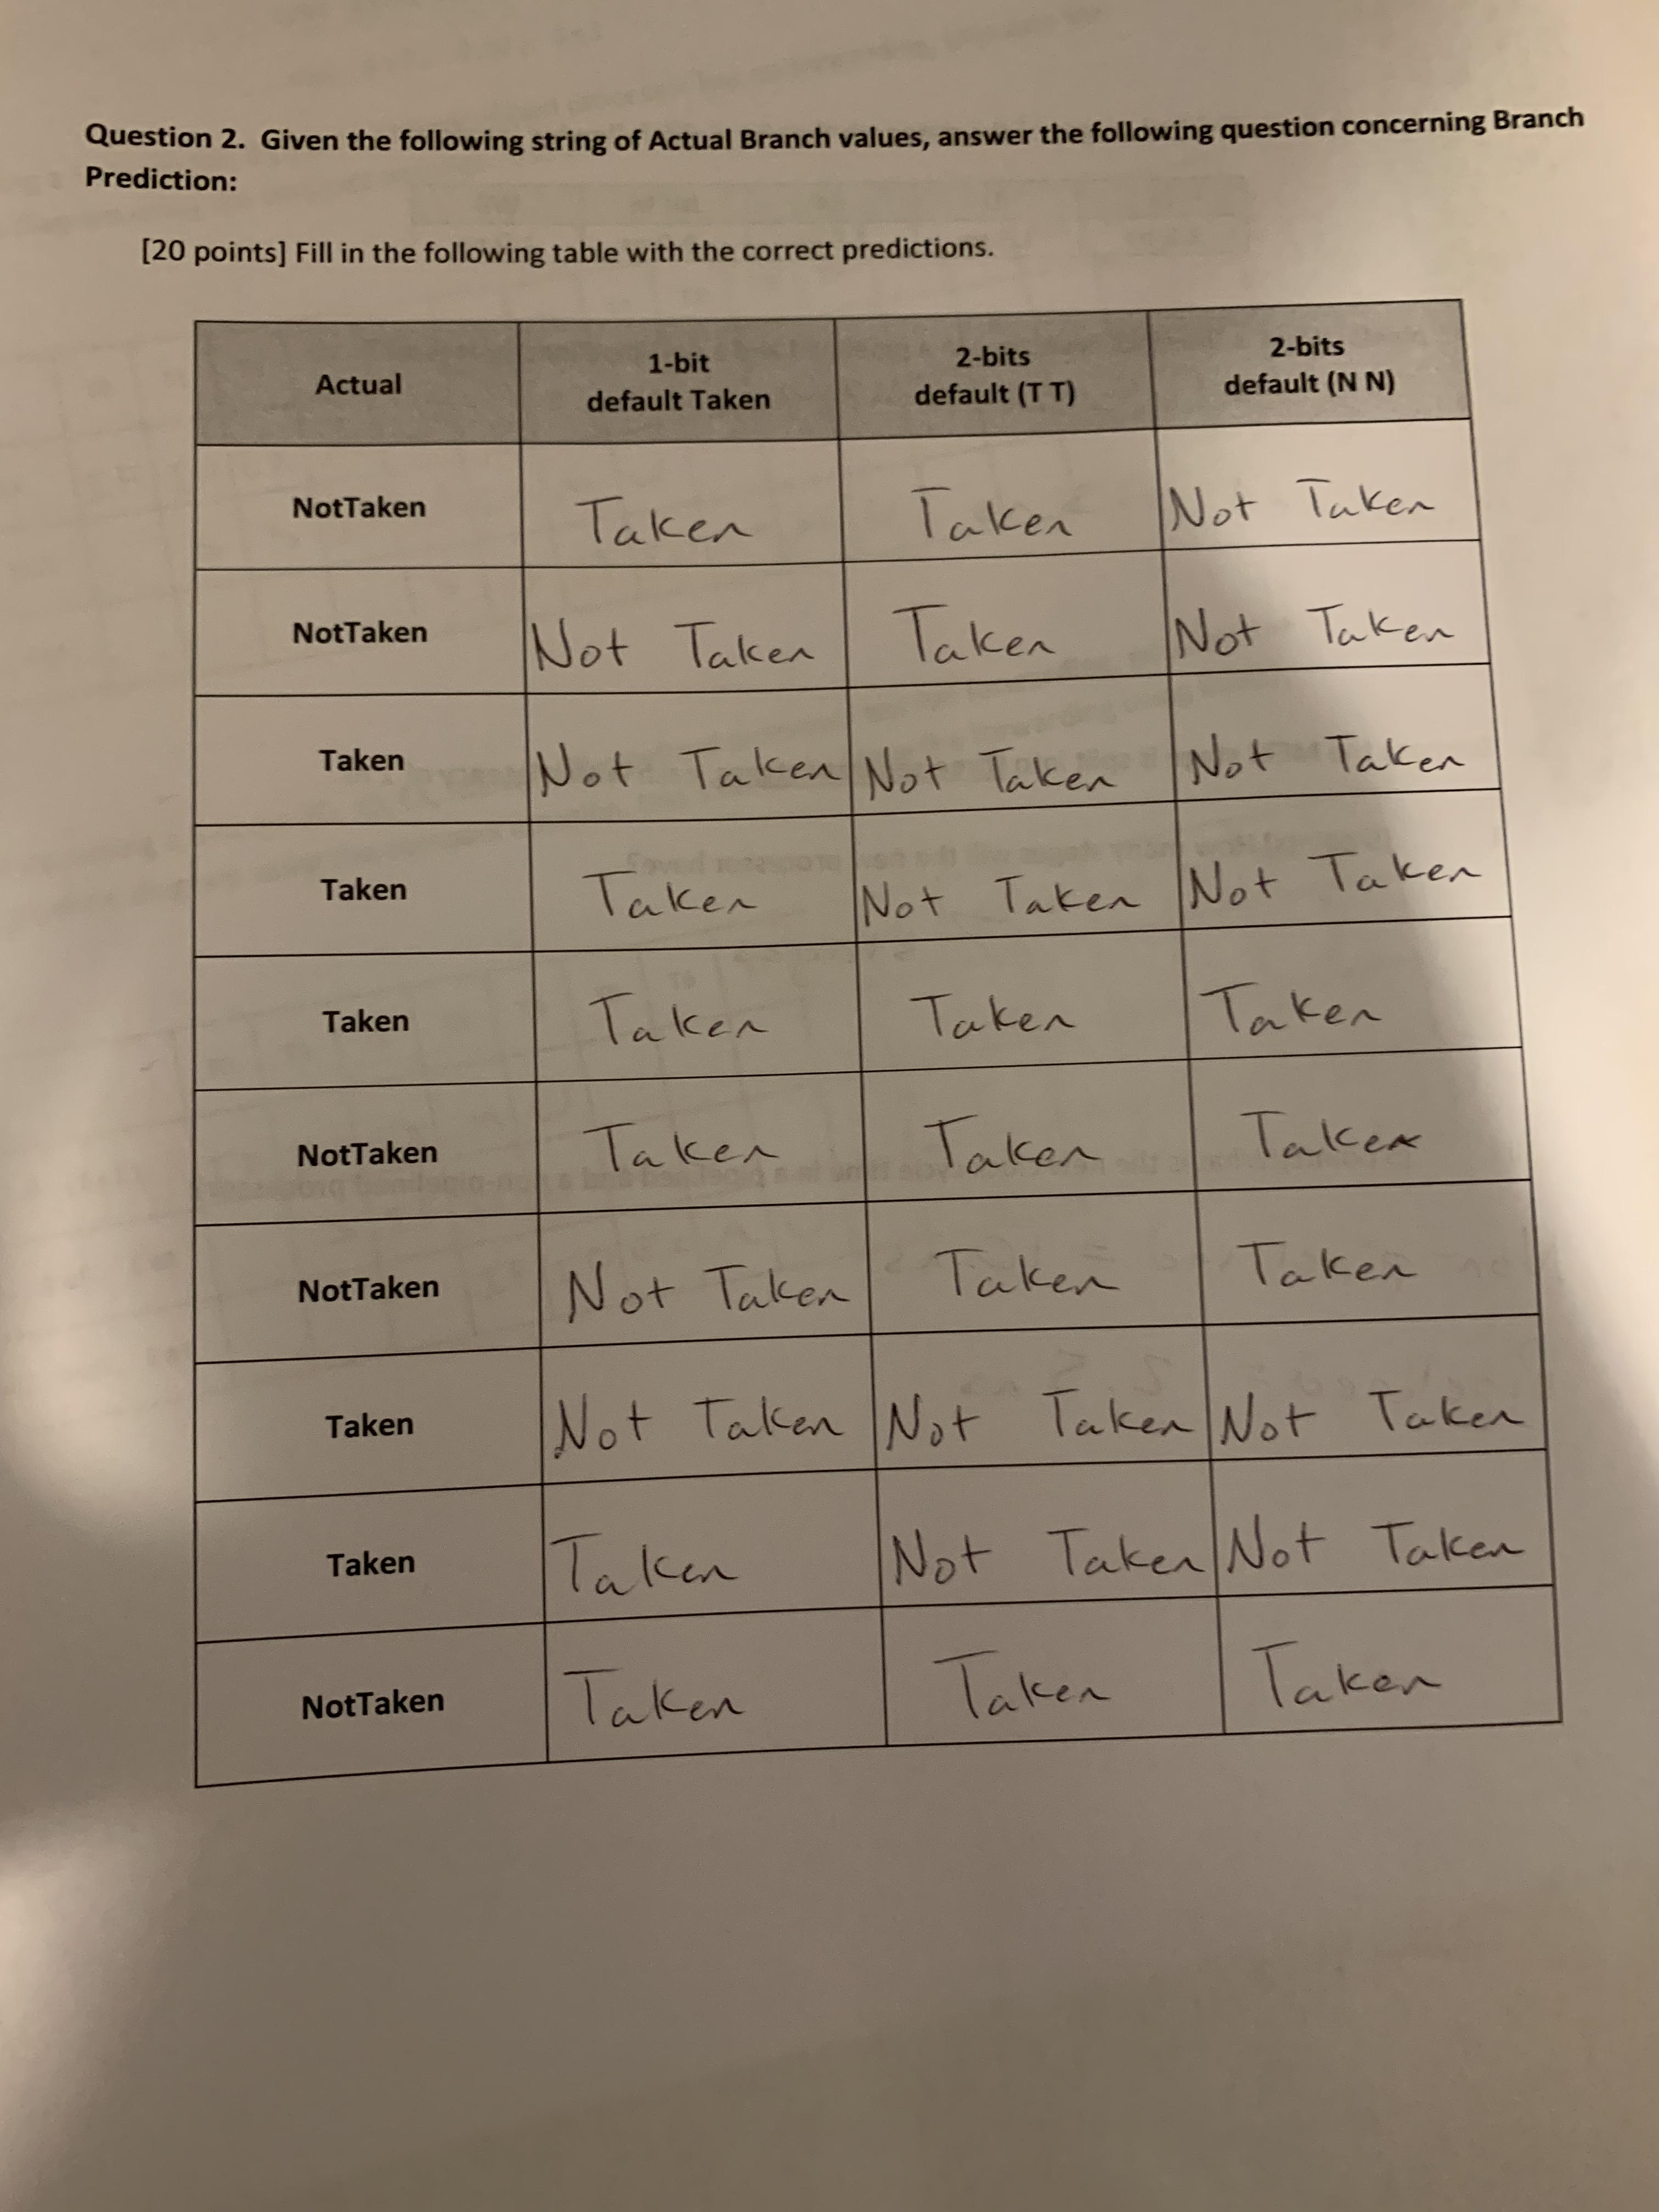 Question 2. Given the following string of Actual Branch values, answer the following question concerning Branch
Prediction:
[20 points] Fill in the following table with the correct predictions.
Actual 1-bit default Taken 2-bits default (T T) 2-bits default (N N)
NotTaken Taken Taken Not Taken
NotTaken Not Taken Taken Not Taken
Taken Not Taken Not Taken Not Taken
Taken Taken Not Taken Not Taken
Taken Taken Taken Taken
NotTaken Taken Taken Taken
NotTaken Not Taken Taken Taken
Taken Not Taken Not Taken Not Taken
Taken Taken Not Taken Not Taken
NotTaken Taken Taken Taken